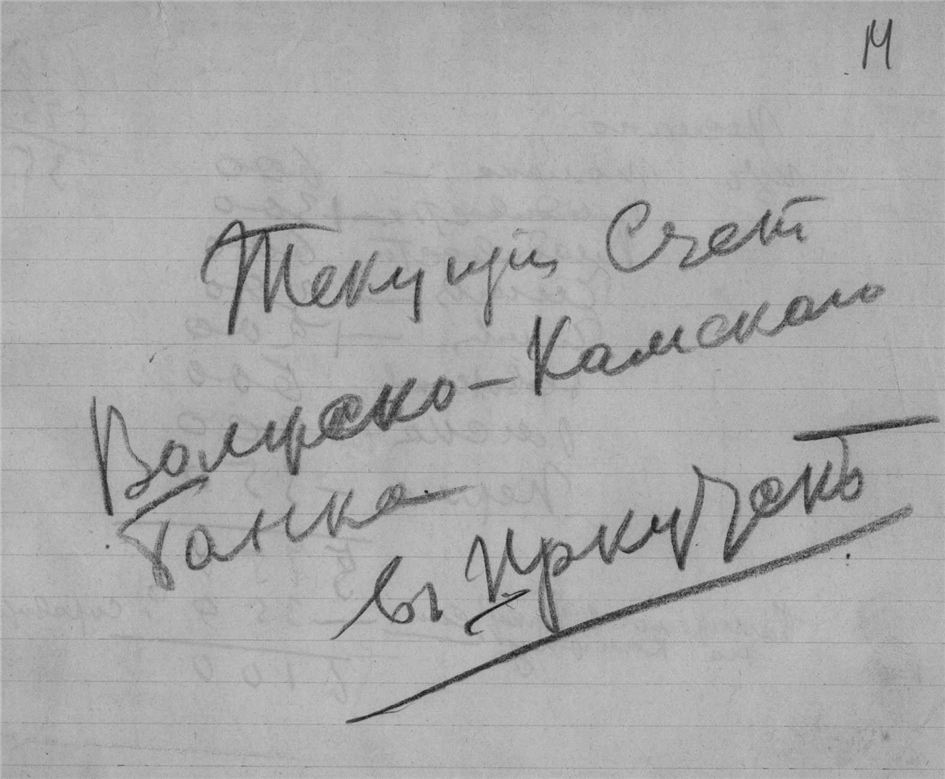 14
Текущий Счет
Волжско-Камскаго
Банка
въ Иркутскѣ